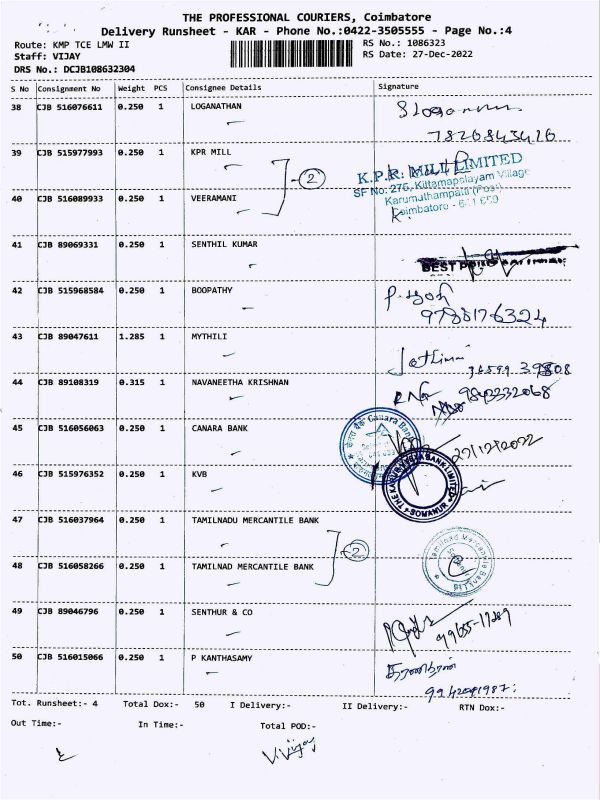 THE PROFESSIONAL COURIERS, Coimbatore
Delivery Runsheet - KAR - Phone No.:0422-3505555 - Page No.:4
Route: KMP TCE LMW II
RS No.: 1086323
Staff: VIJAY
RS Date: 27-Dec-2022
DRS No.: DCJB108632304
S No Consignment No Weight PCS Consignee Details Signature
38 CJB 516076611 0.250 1 LOGANATHAN
39 CJB 515977993 0.250 1 KPR MILL
2
K.P.R. MILL LIMITED
SF No: 276, Kittampalayam Village
Karumathampatti (Post)
Coimbatore - 641 659
40 CJB 516089933 0.250 1 VEERAMANI
41 CJB 89069331 0.250 1 SENTHIL KUMAR
BEST
42 CJB 515968584 0.250 1 BOOPATHY
9788176324
43 CJB 89047611 1.285 1 MYTHILI
44 CJB 89108319 0.315 1 NAVANEETHA KRISHNAN
9843332068
45 CJB 516056063 0.250 1 CANARA BANK
Canara Bank
27/12/2022
46 CJB 515976352 0.250 1 KVB
THE KARUR VYSYA BANK LIMITED
SOMANUR
47 CJB 516037964 0.250 1 TAMILNADU MERCANTILE BANK
2
Tamilnad Mercantile Bank Ltd
48 CJB 516058266 0.250 1 TAMILNAD MERCANTILE BANK
49 CJB 89046796 0.250 1 SENTHUR & CO
99655-17289
50 CJB 516015066 0.250 1 P KANTHASAMY
Tot. Runsheet:- 4 Total Dox:- 50 I Delivery:- II Delivery:- RTN Dox:-
Out Time:- In Time:- Total POD:-
V. Vijay